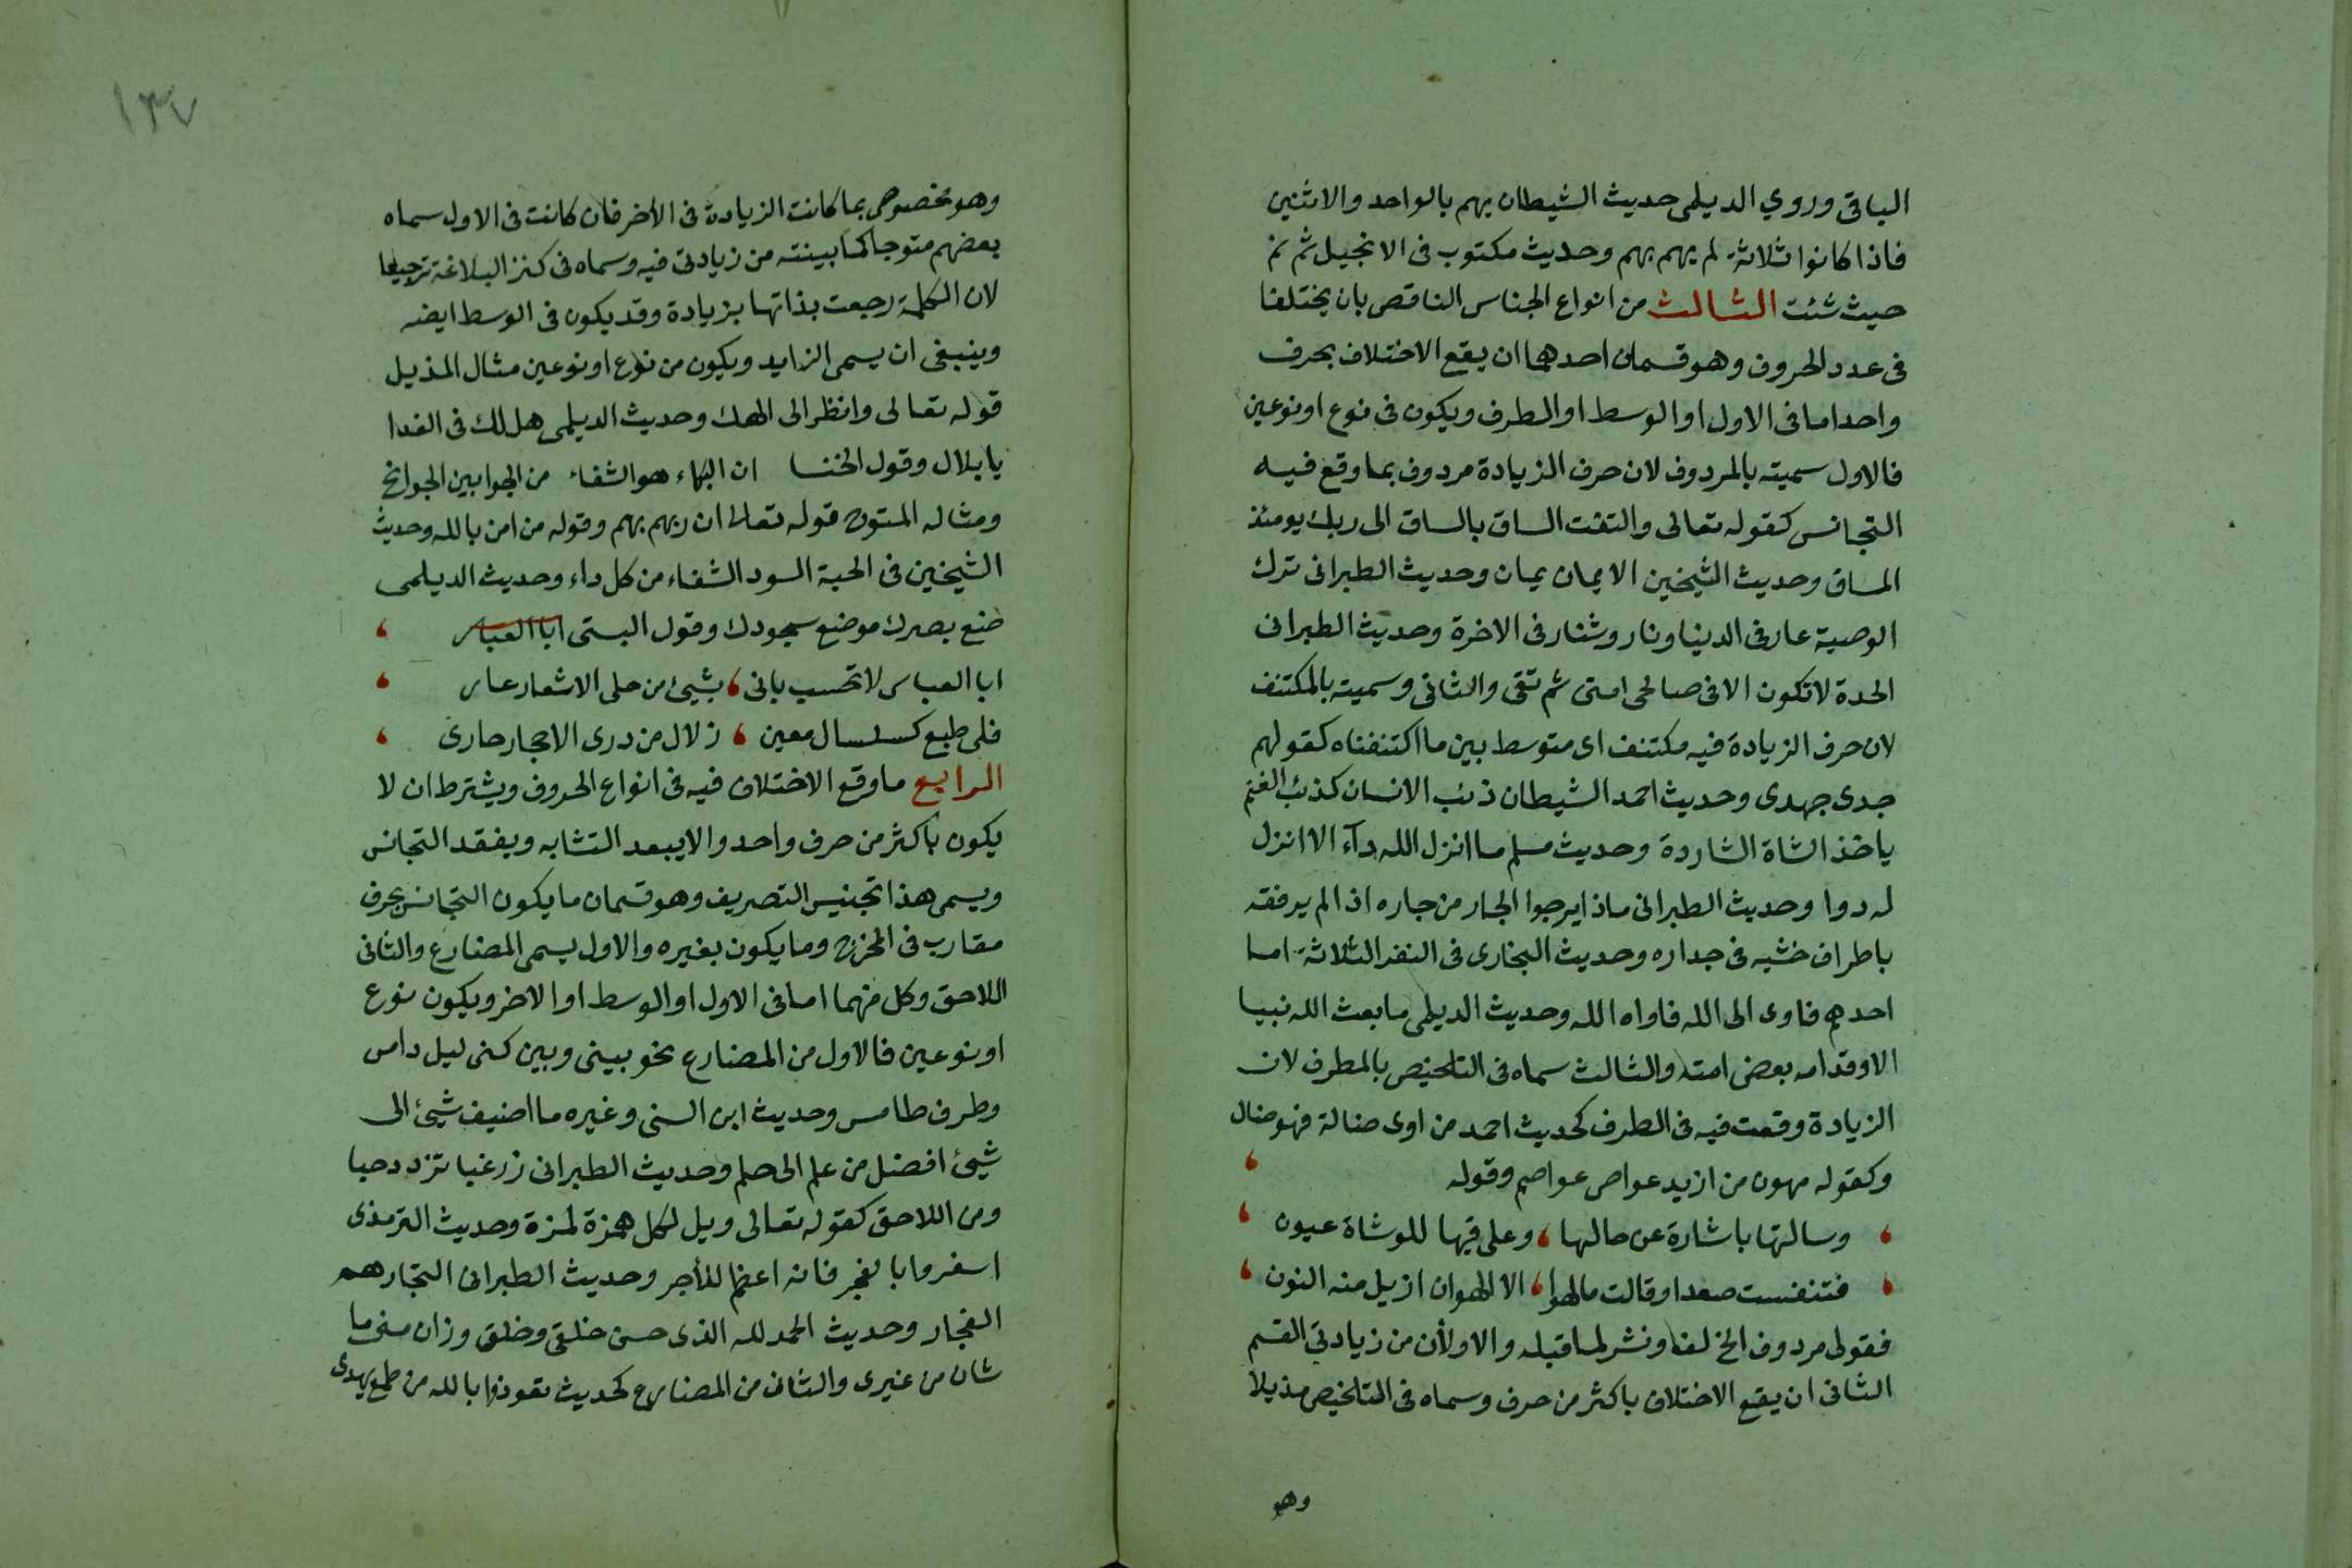 الباقى وروي الديلمى حديث الشيطان يهم بالواحد والاثنين
فاذا كانوا ثلاثة لم يهم بهم وحديث مكتوب فى الانجيل ثم نم
حيث شئت الثالث من انواع الجناس الناقص بان يختلفا
فى عدد الحروف وهو قسمان احدهما ان يقع الاختلاف بحرف
واحد اما فى الاول او الوسط او الطرف ويكون فى نوع او نوعين
فالاول سميته بالمردوف لان حرف الزيادة مردوف بما وقع فيه
التجانس كقوله تعالى والتفت الساق بالساق الى ربك يومئذ
المساق وحديث الشيخين الايمان يمان وحديث الطبرانى ترك
الوصية عار فى الدنيا ونار وشنار فى الاخرة وحديث الطبرانى
الحدة لا تكون الا فى صالحى امتى ثم تفى والثانى وسميته بالمكتنف
لان حرف الزيادة فيه مكتنف اى متوسط بين ما اكتنفناه كقولهم
جدى جهدى وحديث احمد الشيطان ذئب الانسان كذئب الغنم
ياخذ الشاة الشاردة وحديث مسلم ما انزل الله دآء الا انزل
له دوا وحديث الطبرانى ماذا يرجوا الجار من جاره اذا لم يرفقه
باطراف خشبه فى جداره وحديث البخارى فى النفر الثلاثة اما
احدهم فاوى الى الله فاواه الله وحديث الديلمى ما بعث الله نبيا
الا وقد امه بعض امته والثالث سماه فى التلخيص بالمطرف لان
الزيادة وقعت فيه فى الطرف كحديث احمد من اوى ضالة فهو ضال
وكقوله يمدون من ازيد عواص عواصم وقوله
وسالتها باشارة عن حالها ، وعلى فيها للوشاة عيون
فتنفست صعدا وقالت ما الهوا ، الا الهوان ازيل منه النون
فقولى مردوف الخ لف ونشر لما قبله والاولان من زيادتى القسم
الثانى ان يقع الاختلاف باكثر من حرف وسماه فى التلخيص مذيلا
وهو
١٣٧
وهو مخصوص بما كانت الزيادة فى الاخر فان كانت فى الاول سماه
بعضهم متوجا كما بينته من زيادتى فيه وسماه فى كنز البلاغة ترجيعا
لان الكلمة رجعت بذاتها بزيادة وقد يكون فى الوسط ايضه
وينبغى ان يسمى الزايد ويكون من نوع او نوعين مثال المذيل
قوله تعالى وانظر الى الهك وحديث الديلمى هل لك فى الغدا
يا بلال وقول الخنسا ان البكاء هو الشفاء من الجوا بين الجوانح
ومثاله المتوج قوله تعالى ان ربهم بهم وقوله من امن بالله وحديث
الشيخين فى الحبة السود الشفاء من كل داء وحديث الديلمى
ضع بصرك موضع سجودك وقول البستى ابا العباس
ابا العباس لا تحسب بانى ، بشيئ من حلى الاشعار عار
فلى طبع كسلسال معين ، زلال من درى الاحجار جارى
الرابع ما وقع الاختلاف فيه فى انواع الحروف ويشترط ان لا
يكون باكثر من حرف واحد والا يبعد التشابه ويفقد التجانس
ويسمى هذا تجنيس التصريف وهو قسمان ما يكون التجانس بحرف
مقارب فى المخرج وما يكون بغيره والاول يسمى المضارع والثانى
اللاحق وكل منهما اما فى الاول او الوسط او الاخر ويكون نوع
او نوعين فالاول من المضارع نحو بينى وبين كنى ليل دامس
وطرف طامس وحديث ابن السنى وغيره ما اضيف شيئ الى
شيئ افضل من علم الى حلم وحديث الطبرانى زر غبا تزدد حبا
ومن اللاحق كقوله تعالى ويل لكل همزة لمزة وحديث الترمذى
اسفروا بالفجر فانه اعظم للأجر وحديث الطبرانى التجار هم
الفجار وحديث الحمد لله الذى حسن خلقى وخلق وزان منى ما
شان من غيرى والثانى من المضارع كحديث تعوذوا بالله من طمع يهدى